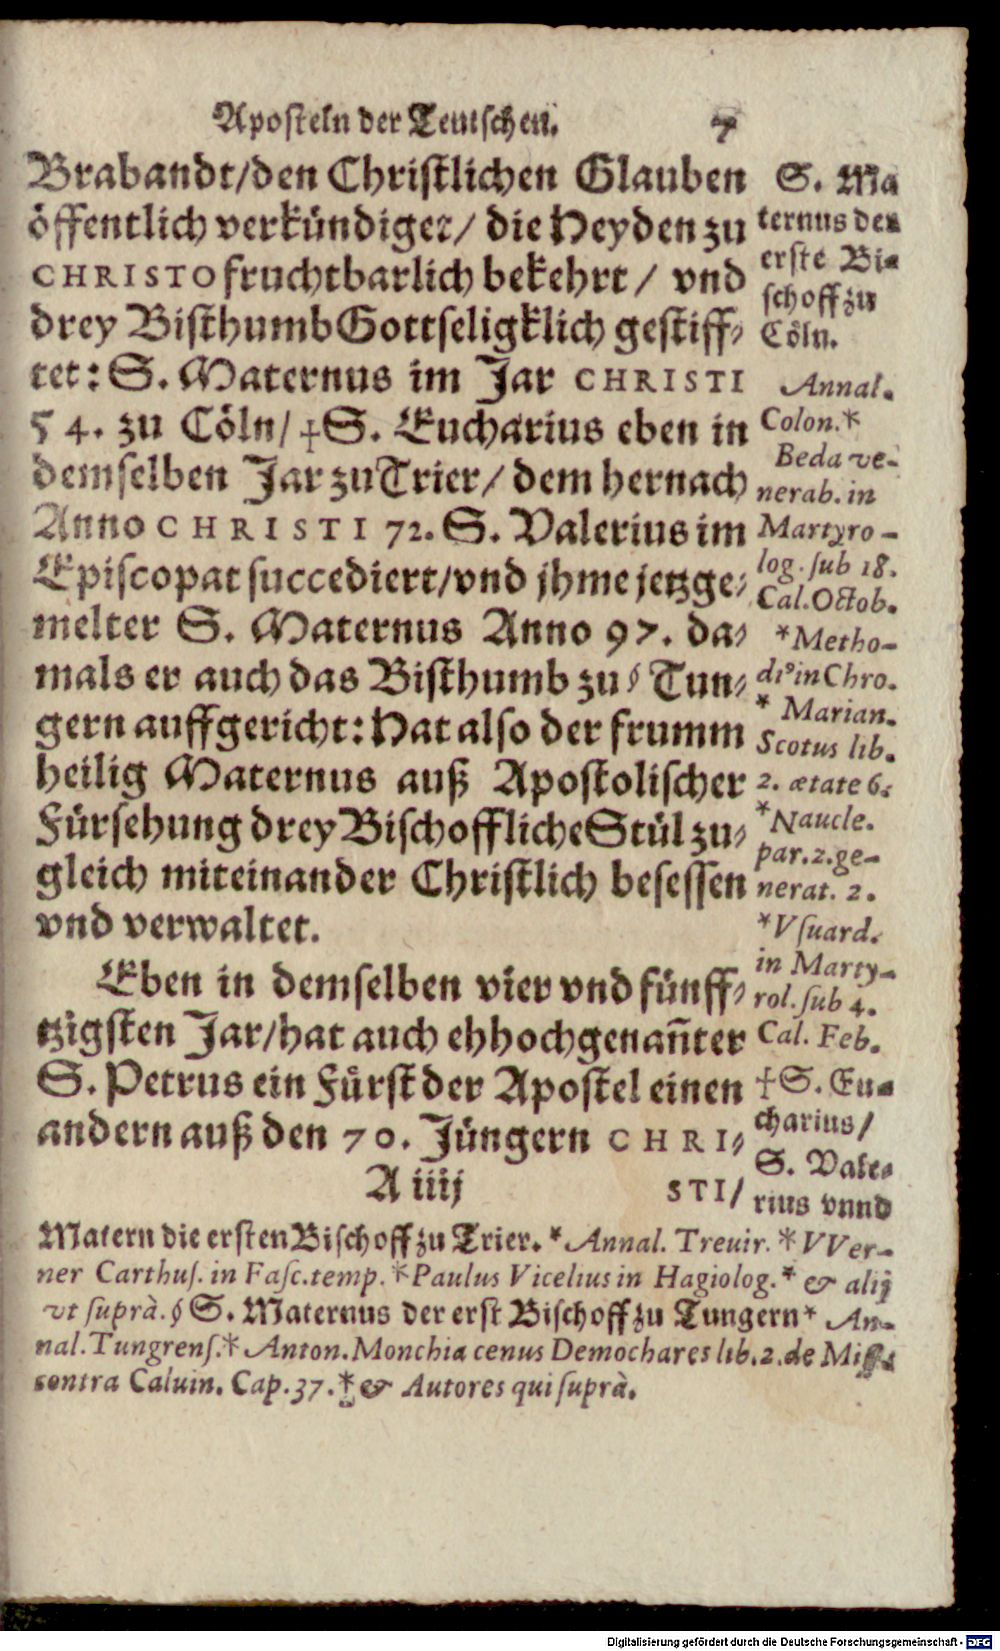 Aposteln der Teutschen. 7
Brabandt/den Christlichen Glauben
öffentlich verkündiget/ die Heyden zu
CHRISTO fruchtbarlich bekehrt/ vnd
drey Bisthumb Gottseligklich gestiff-
tet: S. Maternus im Jar CHRISTI
54. zu Cöln/ †S. Eucharius eben in
demselben Jar zu Trier/ dem hernach
Anno CHRISTI 72. S. Valerius im
Episcopat succediert/vnd jhme jetzge-
melter S. Maternus Anno 97. da-
mals er auch das Bisthumb zu § Tun-
gern auffgericht: Hat also der frumm
heilig Maternus auß Apostolischer
Fürsehung drey Bischoffliche Stül zu-
gleich miteinander Christlich besessen
vnd verwaltet.
Eben in demselben vier vnd fünff-
tzigsten Jar/hat auch ehhochgenañter
S. Petrus ein Fürst der Apostel einen
andern auß den 70. Jüngern CHRI-
A iiij STI/
S. Ma
ternus der
erste Bi-
schoff zu
Cöln.
Annal.
Colon.*
Beda ve-
nerab. in
Martyro-
log. sub 18.
Cal. Octob.
*Metho-
di⁹ in Chro.
* Marian.
Scotus lib.
2. ætate 6.
*Naucle.
par. 2. ge-
nerat. 2.
*Vsuard.
in Marty-
rol. sub 4.
Cal. Feb.
†S. Eu-
charius/
S. Vale-
rius vnnd
Matern die ersten Bischoff zu Trier. * Annal. Treuir. * VVer-
ner Carthus. in Fasc. temp. *Paulus Vicelius in Hagiolog. * & alij
vt suprà. § S. Maternus der erst Bischoff zu Tungern * An-
nal. Tungrens.* Anton. Monchiacenus Demochares lib. 2. de Miss.
contra Caluin. Cap. 37. * & Autores qui suprà.
Digitalisierung gefördert durch die Deutsche Forschungsgemeinschaft - DFG